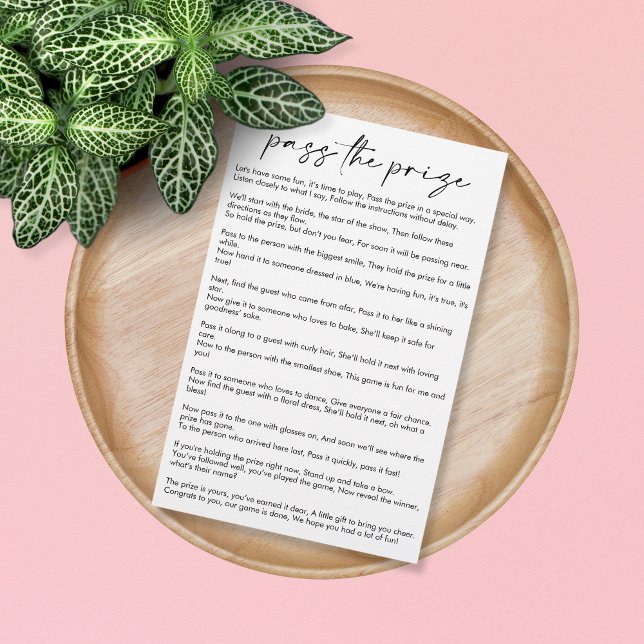 pass the prize
Let's have some fun, it's time to play, Pass the prize in a special way.
Listen closely to what I say, Follow the instructions without delay.
We'll start with the bride, the star of the show, Then follow these
directions as they flow.
So hold the prize, but don't you fear, For soon it will be passing near.
Pass to the person with the biggest smile, They hold the prize for a little
while.
Now hand it to someone dressed in blue, We're having fun, it's true, it's
true!
Next, find the guest who came from afar, Pass it to her like a shining
star.
Now give it to someone who loves to bake, She'll keep it safe for
goodness' sake.
Pass it along to a guest with curly hair, She'll hold it next with loving
care.
Now to the person with the smallest shoe, This game is fun for me and
you!
Pass it to someone who loves to dance, Give everyone a fair chance.
Now find the guest with a floral dress, She'll hold it next, oh what a
bless!
Now pass it to the one with glasses on, And soon we'll see where the
prize has gone.
To the person who arrived here last, Pass it quickly, pass it fast!
If you're holding the prize right now, Stand up and take a bow.
You've followed well, you've played the game, Now reveal the winner,
what's their name?
The prize is yours, you've earned it dear, A little gift to bring you cheer.
Congrats to you, our game is done, We hope you had a lot of fun!